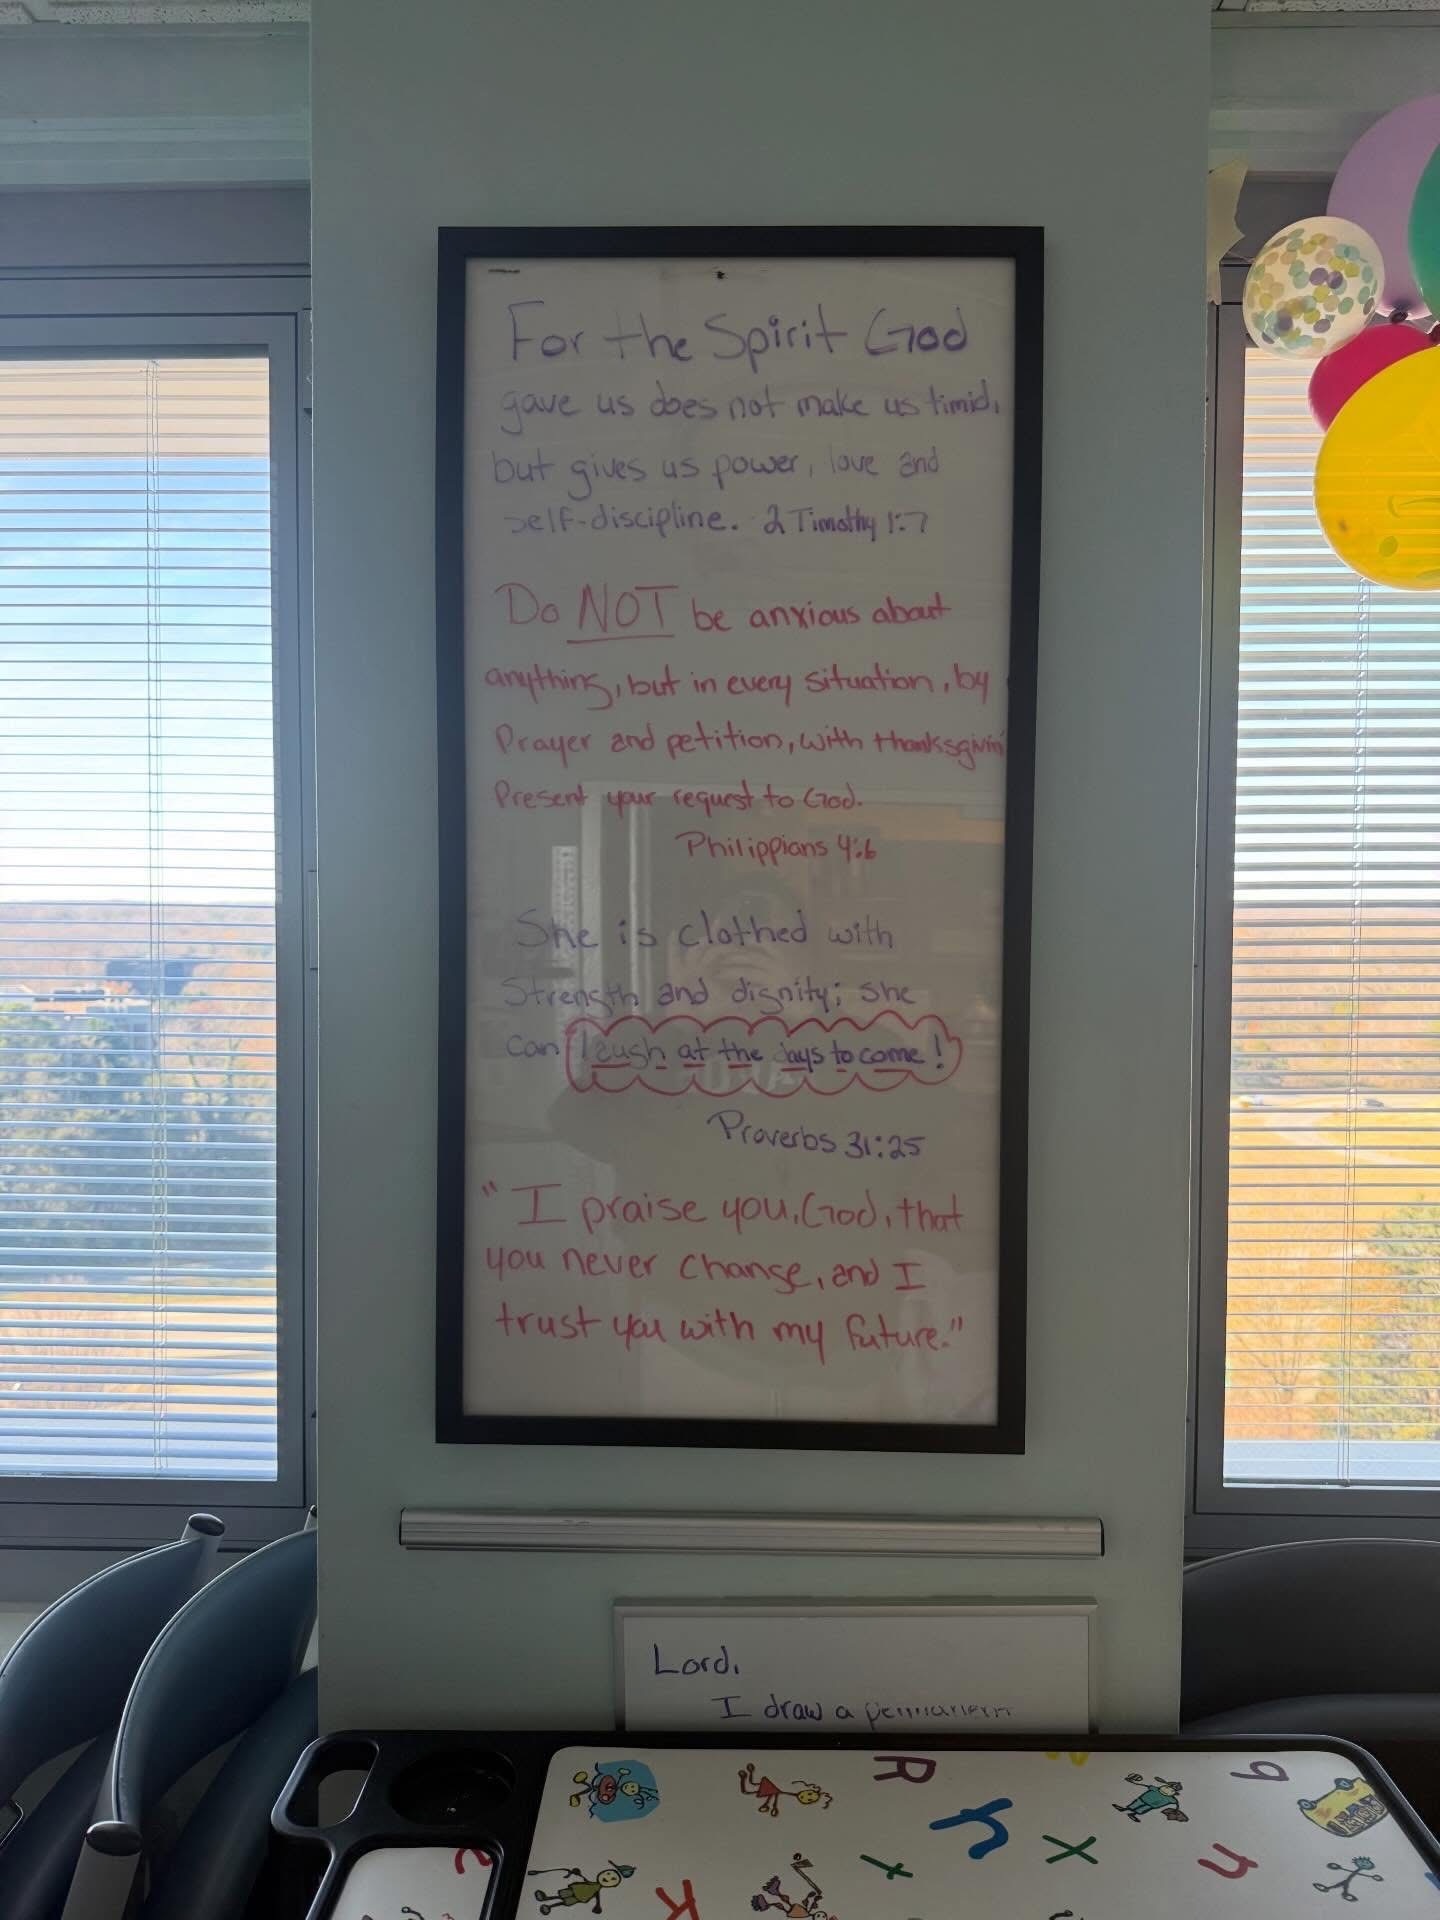 For the Spirit God
gave us does not make us timid,
but gives us power, love and
self-discipline. 2 Timothy 1:7
Do NOT be anxious about
anything, but in every situation, by
Prayer and petition, with thanksgivin
Present your request to God.
Philippians 4:6
She is clothed with
Strength and dignity; she
can laugh at the days to come!
Proverbs 31:25
"I praise you, God, that
you never change, and I
trust you with my future."
Lord,
I draw a
R
q
r
x
t
n
K